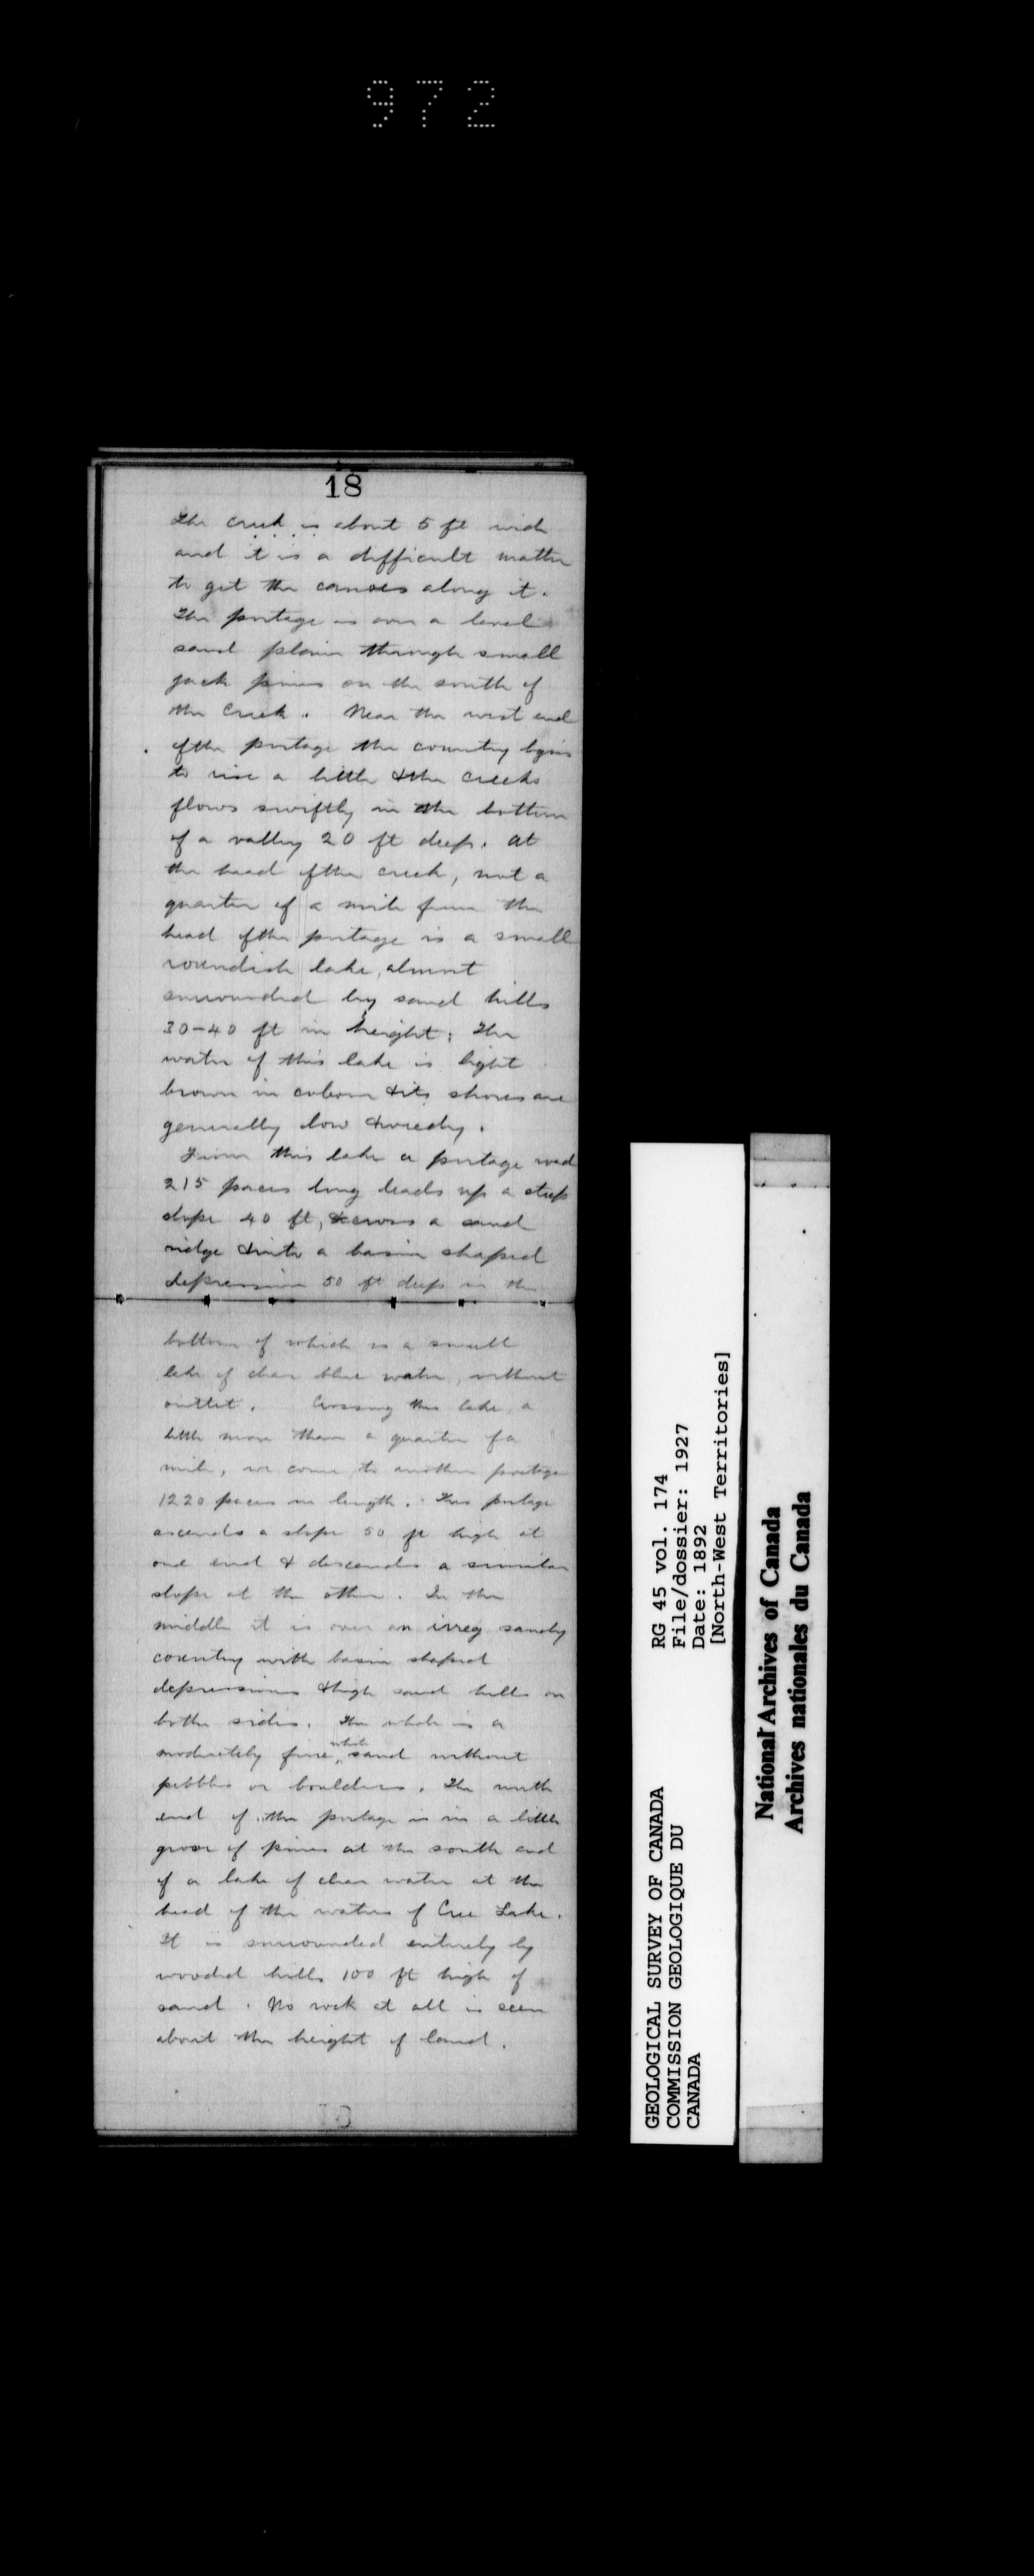 972
18
The creek is about 5 ft wide
and it is a difficult matter
to get the canoes along it.
The portage is over a level
sand plain through small
jack pines on the south of
the creek. Near the west end
of the portage the country begins
to rise a little & the creeks
flows swiftly in the bottom
of a valley 20 ft deep. At
the head of the creek, not a
quarter of a mile from the
head of the portage is a small
roundish lake, almost
surrounded by sand hills
30-40 ft in height; The
water of this lake is light
brown in colour & its shores are
generally low & reedy.
From this lake a portage road
215 paces long leads up a steep
slope 40 ft, & across a sand
ridge & into a basin shaped
depression 50 ft deep in the
bottom of which is a small
lake of clear blue water, without
outlet. Crossing this lake, a
little more than a quarter of a
mile, we come to another portage
1220 paces in length. This portage
ascends a slope 50 ft high at
one end & descends a similar
slope at the other. In the
middle it is over an irreg sandy
country with basin shaped
depressions & high sand hills on
both sides. The whole is a
moderately fine, white sand without
pebbles or boulders. The north
end of the portage is in a little
grove of pines at the south end
of a lake of clear water at the
head of the waters of Cree Lake.
It is surrounded entirely by
wooded hills 100 ft high of
sand. No rock at all is seen
about the height of land.
GEOLOGICAL SURVEY OF CANADA
COMMISSION GEOLOGIQUE DU
CANADA
RG 45 vol. 174
File/dossier: 1927
Date: 1892
[North-West Territories]
National Archives of Canada
Archives nationales du Canada